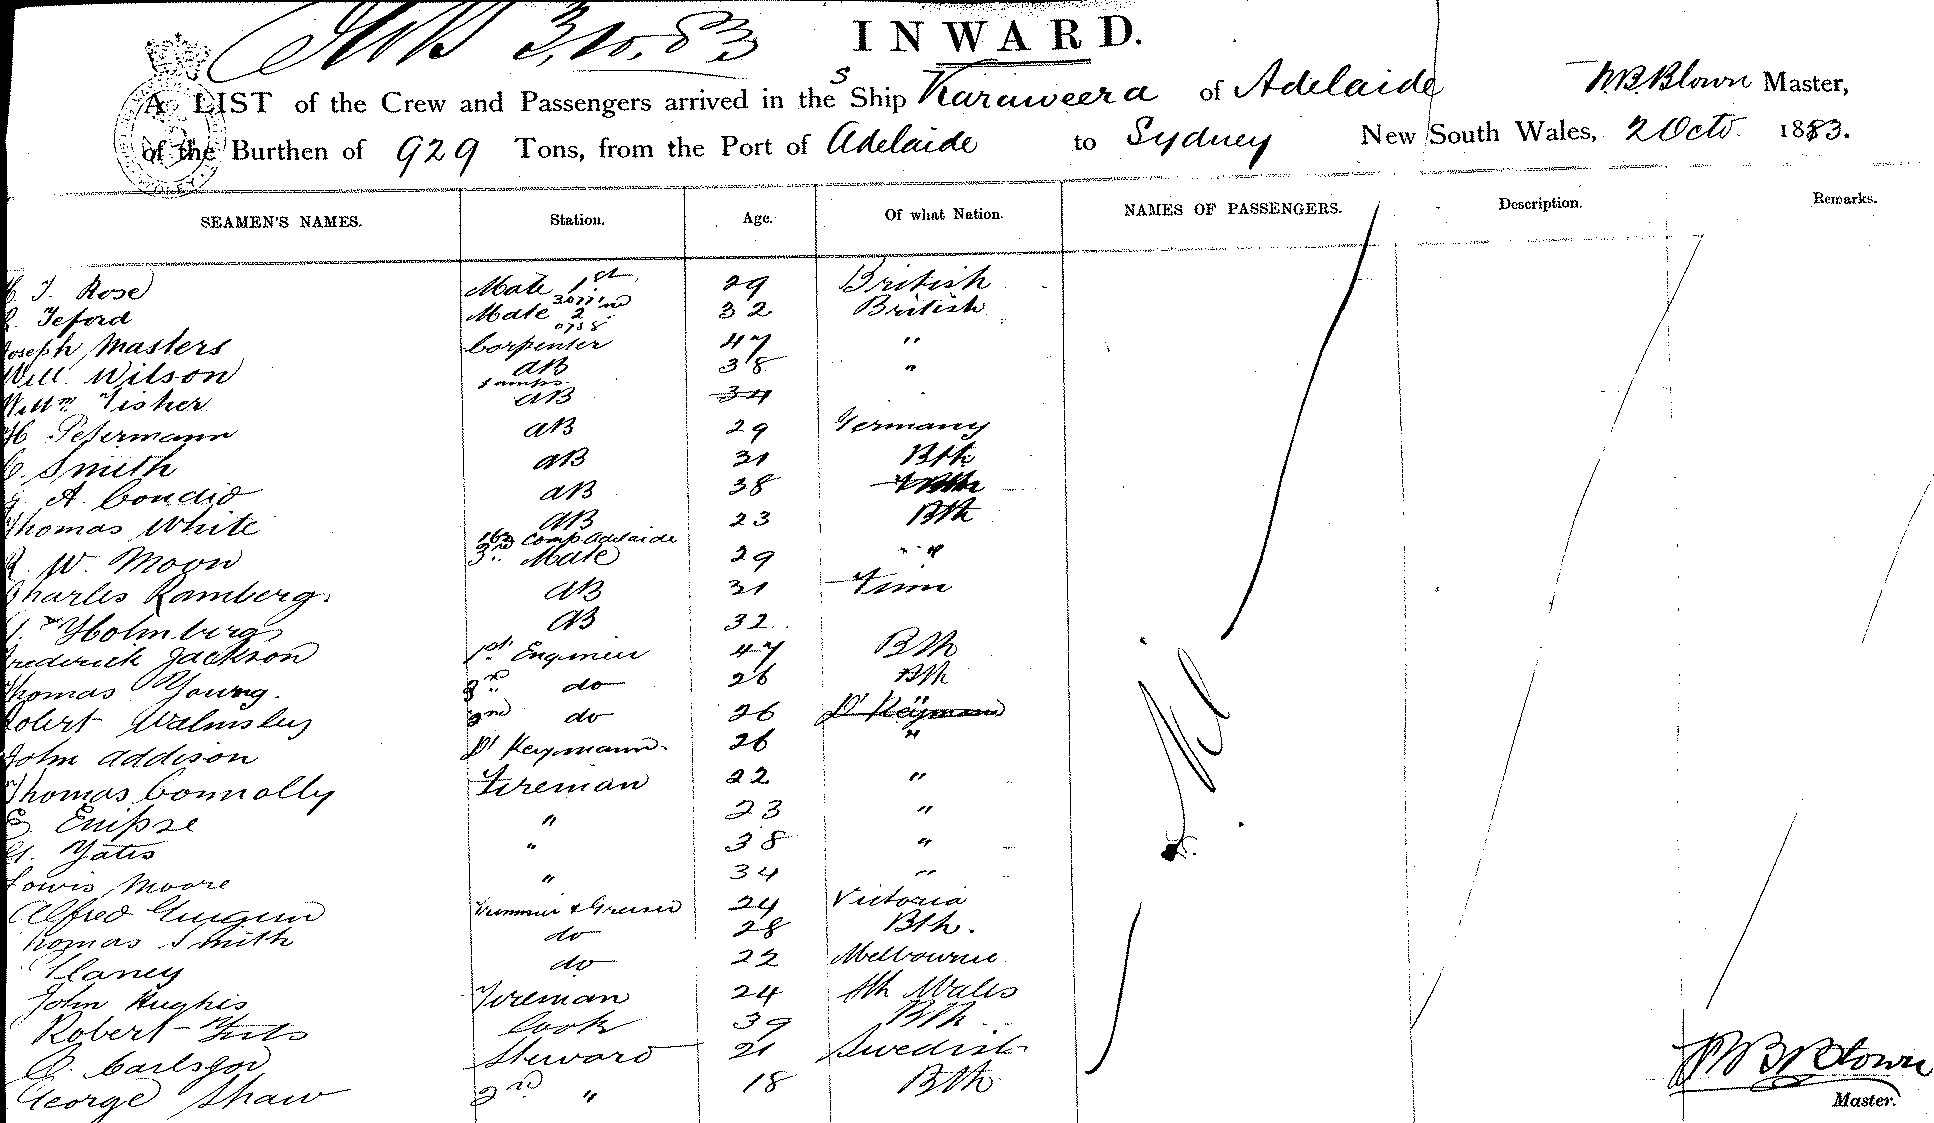 3.10.83
INWARD.
A LIST of the Crew and Passengers arrived in the S Ship Karaweera of Adelaide Master,
of the Burthen of 929 Tons, from the Port of Adelaide to Sydney New South Wales, 2 Octr 1883.
SEAMEN'S NAMES. Station. Age. Of what Nation. NAMES OF PASSENGERS. Description. Remarks.
Rose Mate 1st 29 British
Teford Mate 2nd 32 British
Joseph Masters Carpenter 47 "
Will Wilson AB 38 "
Willm Fisher AB 34
H Petermann AB 29 Germany
C. Smith AB 31 Bth
A. AB 38
Thomas White AB 23 Bth
W. Moon 3rd Mate 29 " "
Charles Ramberg AB 31 Finn
Holmberg AB 32
Frederick Jackson 1st Engineer 47 Bth
Thomas Young. do 26 Bth
Robert Walmsley do 26
John Addison 26 "
Thomas Connolly Fireman 22 "
" 23 "
Yates " 38 "
Lowis Moore " 34 "
Alfred Trimmer & Greaser 24 Victoria
Thomas Smith do 28 Bth.
Clancy do 22 Melbourne
John Hughes Fireman 24 Sth Wales
Robert Cook 39 Bth
Carlsson Steward 21 Swedish
George Shaw 2nd " 18 Bth
Nil
Master.